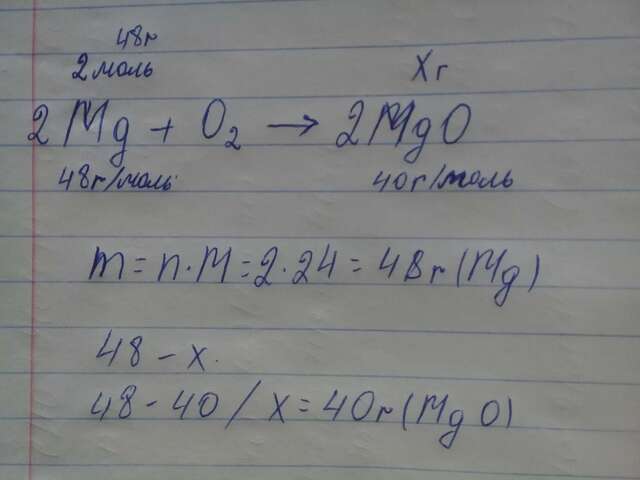 48г
2 моль Xг
2Mg + O₂ → 2MgO
48г/моль 40г/моль
m = n·M = 2·24 = 48г (Mg)
48 – x.
48 – 40 / x = 40г (MgO)